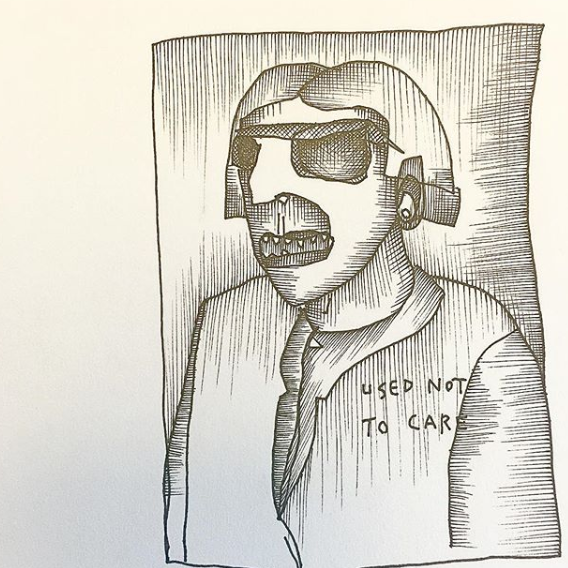 USED NOT
TO CARE